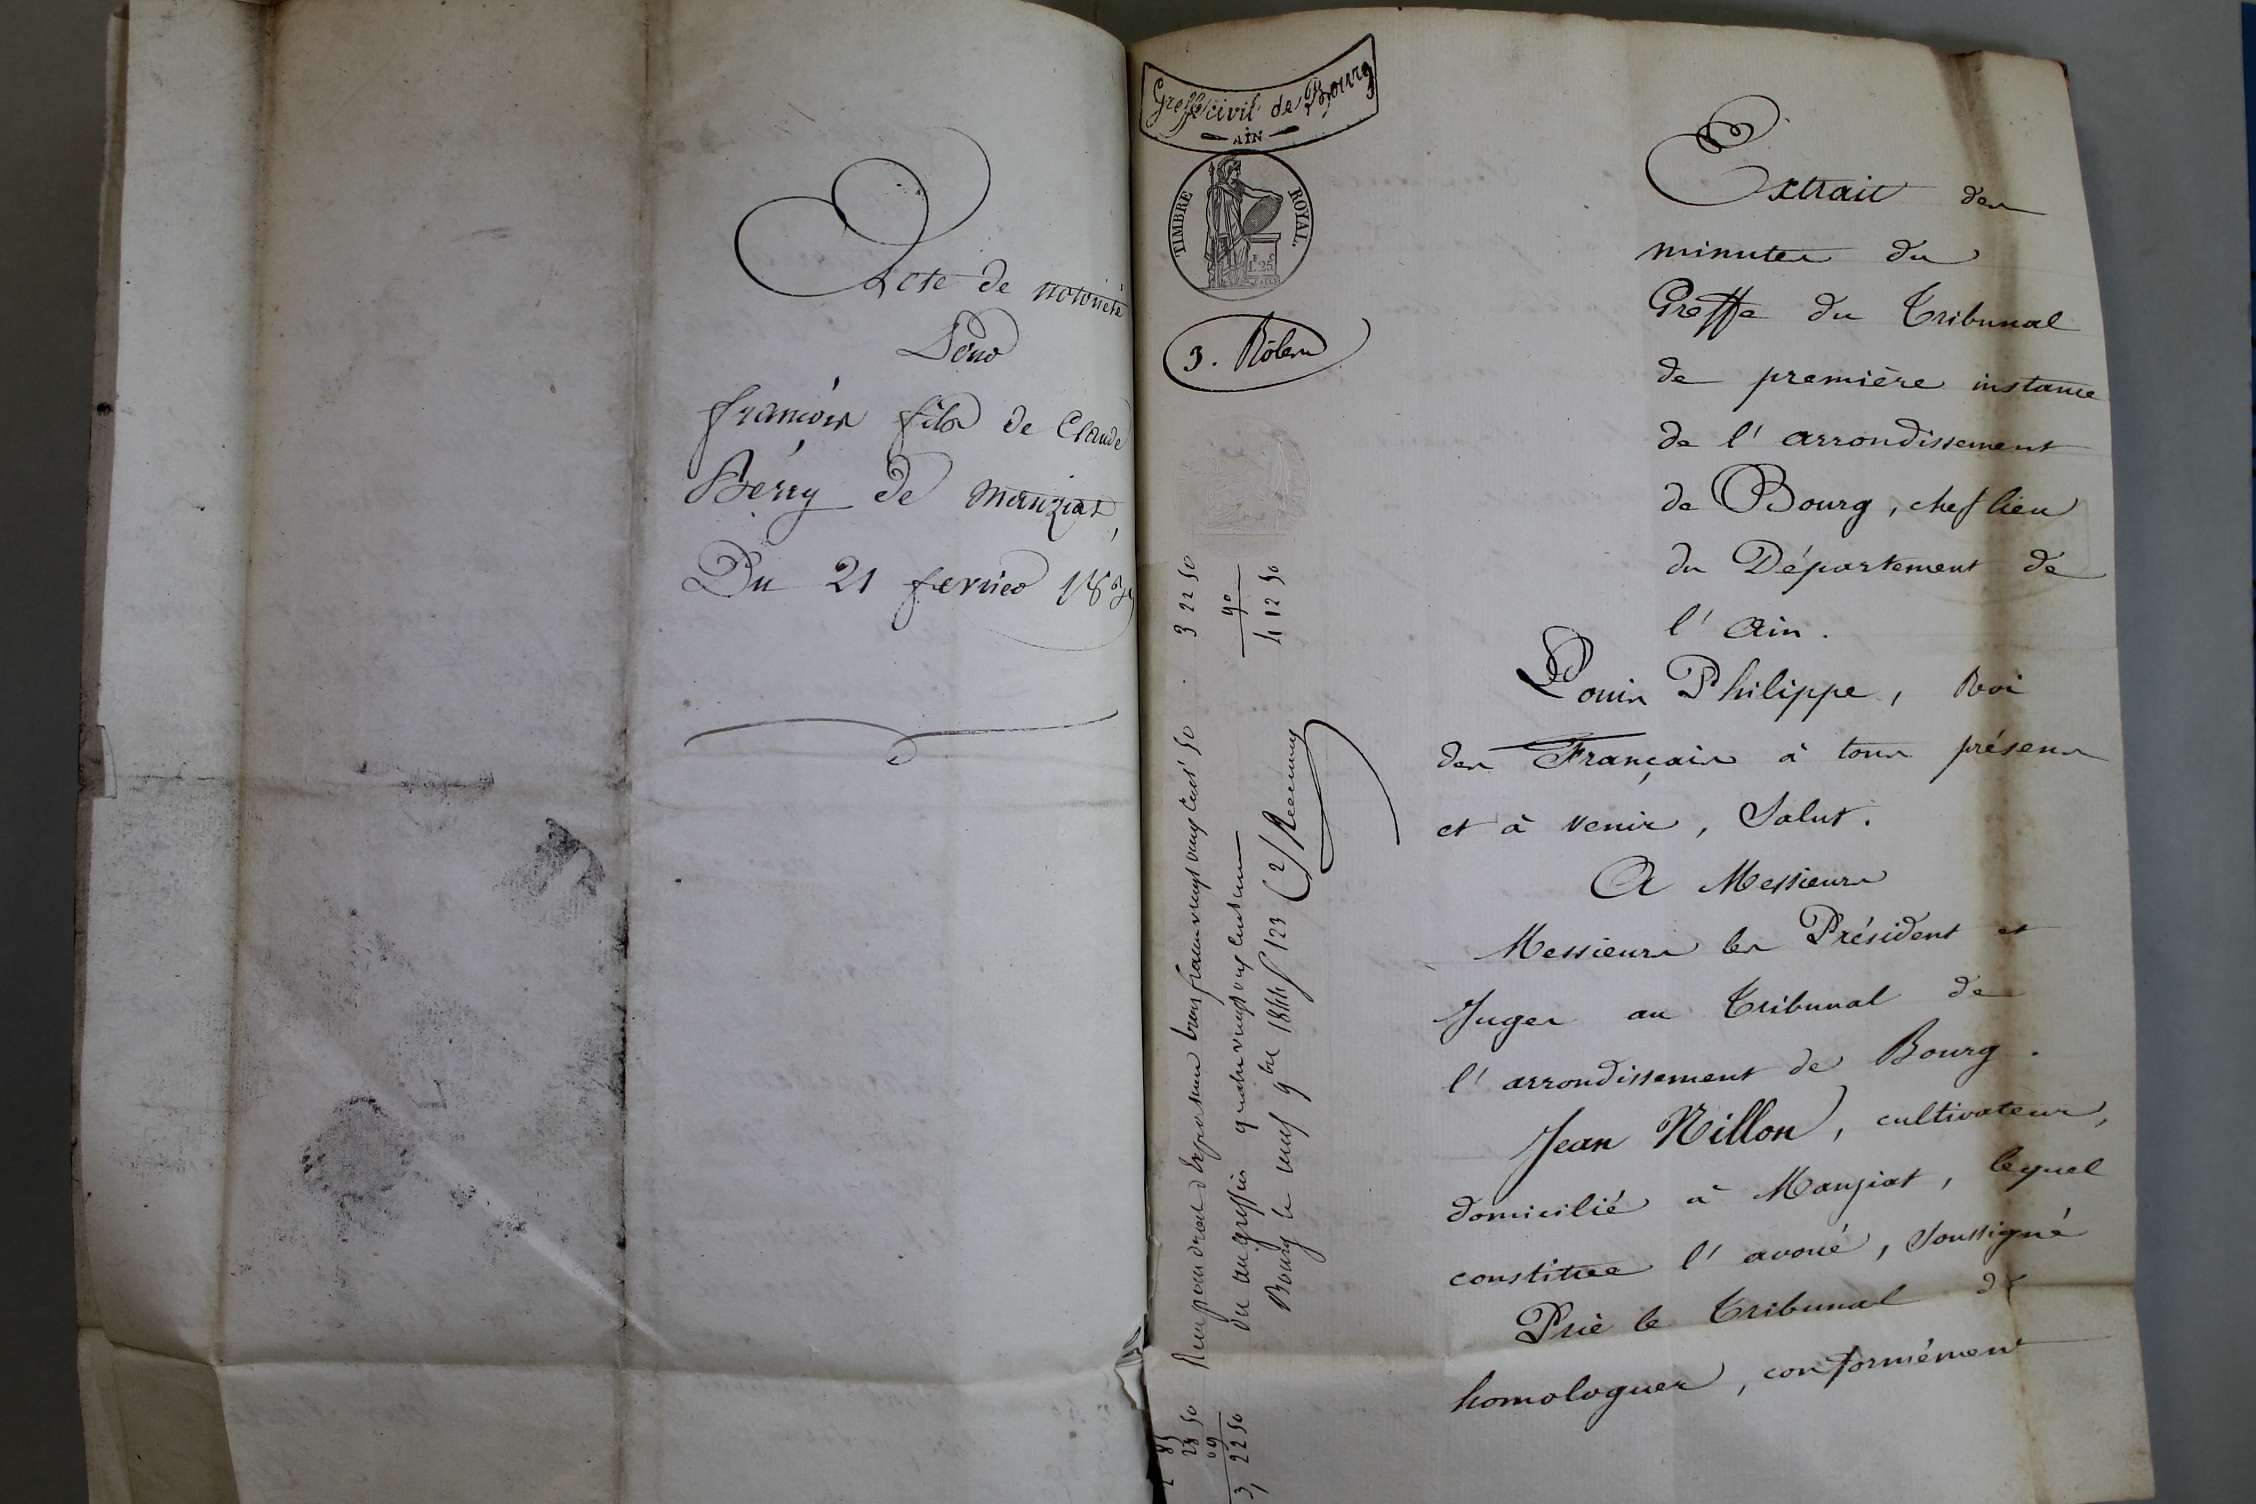 Acte de notoriété
Pour
françois fils de Claude
Béréy de manziat,
Du 21 fevrier
Greffe civil de Bourg
AIN
TIMBRE ROYAL.
1.25
3. Rôles
Extrait des
minutes du
Greffe du Tribunal
de première instance
de l'arrondissement
de Bourg, chef lieu
du Département de
l'Ain.
Louis Philippe, Roi
des Français à tous présens
et à venir, Salut.
A Messieurs
Messieurs les Président et
Juges au Tribunal de
l'arrondissement de Bourg.
Jean Nillon, cultivateur,
domicilié à Manziat, lequel
constitue l'avoué, soussigné
Prie le Tribunal de
homologuer, conformément
Reçu pour droit d'expedition trois francs vingt deux cent' 50 . 3 22 50
Du au greffier quatre vingt dix centimes 90
Bourg le neuf 9bre 1844 f 123 C 2
4 12 50
2 85
28 50
09
3, 22 50